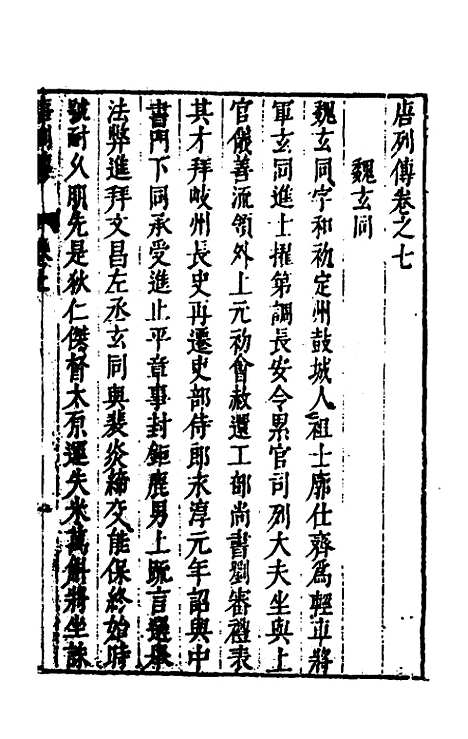 唐列傳卷之七
魏玄同
魏玄同字和初定州鼓城人祖士廓仕齊爲輕車將
軍玄同進士擢第調長安令累官司列大夫坐與上
官儀善流領外上元初會赦還工部尚書劉審禮表
其才拜岐州長史再遷吏部侍郎永淳元年詔與中
書門下同承受進止平章事封鉅鹿男上疏言選舉
法弊進拜文昌左丞玄同與裴炎締交能保終始時
號耐久朋先是狄仁傑督太原運失米萬斛將坐誅